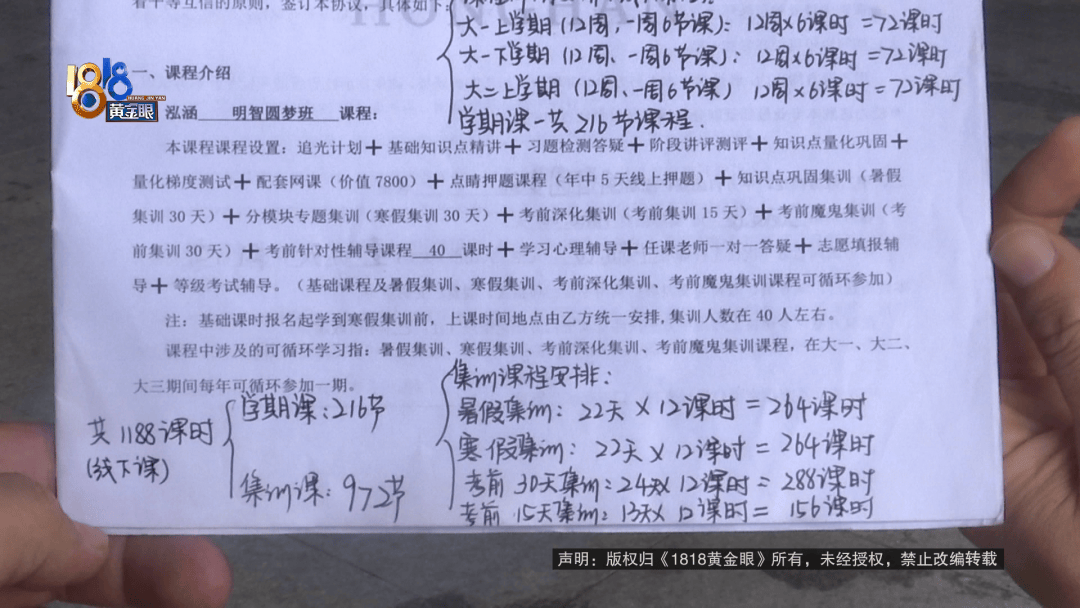 看平等互信的原则，签订本协议，具体如下：
大一上学期（12周，一周6节课）：12周×6课时=72课时
大一下学期（12周、一周6节课）：12周×6课时=72课时
大二上学期（12周、一周6节课）12周×6课时=72课时
学期课一共216节课程.
1818
HUANG JIN YAN
黄金眼
一、课程介绍
泓涵 明智圆梦班 课程：
本课程课程设置：追光计划＋基础知识点精讲＋习题检测答疑＋阶段讲评测评＋知识点量化巩固＋
量化梯度测试＋配套网课（价值7800）＋点睛押题课程（年中5天线上押题）＋知识点巩固集训（暑假
集训30天）＋分模块专题集训（寒假集训30天）＋考前深化集训（考前集训15天）＋考前魔鬼集训（考
前集训30天）＋考前针对性辅导课程 40 课时＋学习心理辅导＋任课老师一对一答疑＋志愿填报辅
导＋等级考试辅导。（基础课程及暑假集训、寒假集训、考前深化集训、考前魔鬼集训课程可循环参加）
注：基础课时报名起学到寒假集训前，上课时间地点由乙方统一安排,集训人数在40人左右。
课程中涉及的可循环学习指：暑假集训、寒假集训、考前深化集训、考前魔鬼集训课程，在大一、大二、
大三期间每年可循环参加一期。
共1188课时
(线下课)
学期课：216节
集训课：972节
集训课程安排：
暑假集训：22天×12课时=264课时
寒假集训：22天×12课时=264课时
考前30天集训：24天×12课时=288课时
考前15天集训：13天×12课时=156课时
声明：版权归《1818黄金眼》所有，未经授权，禁止改编转载